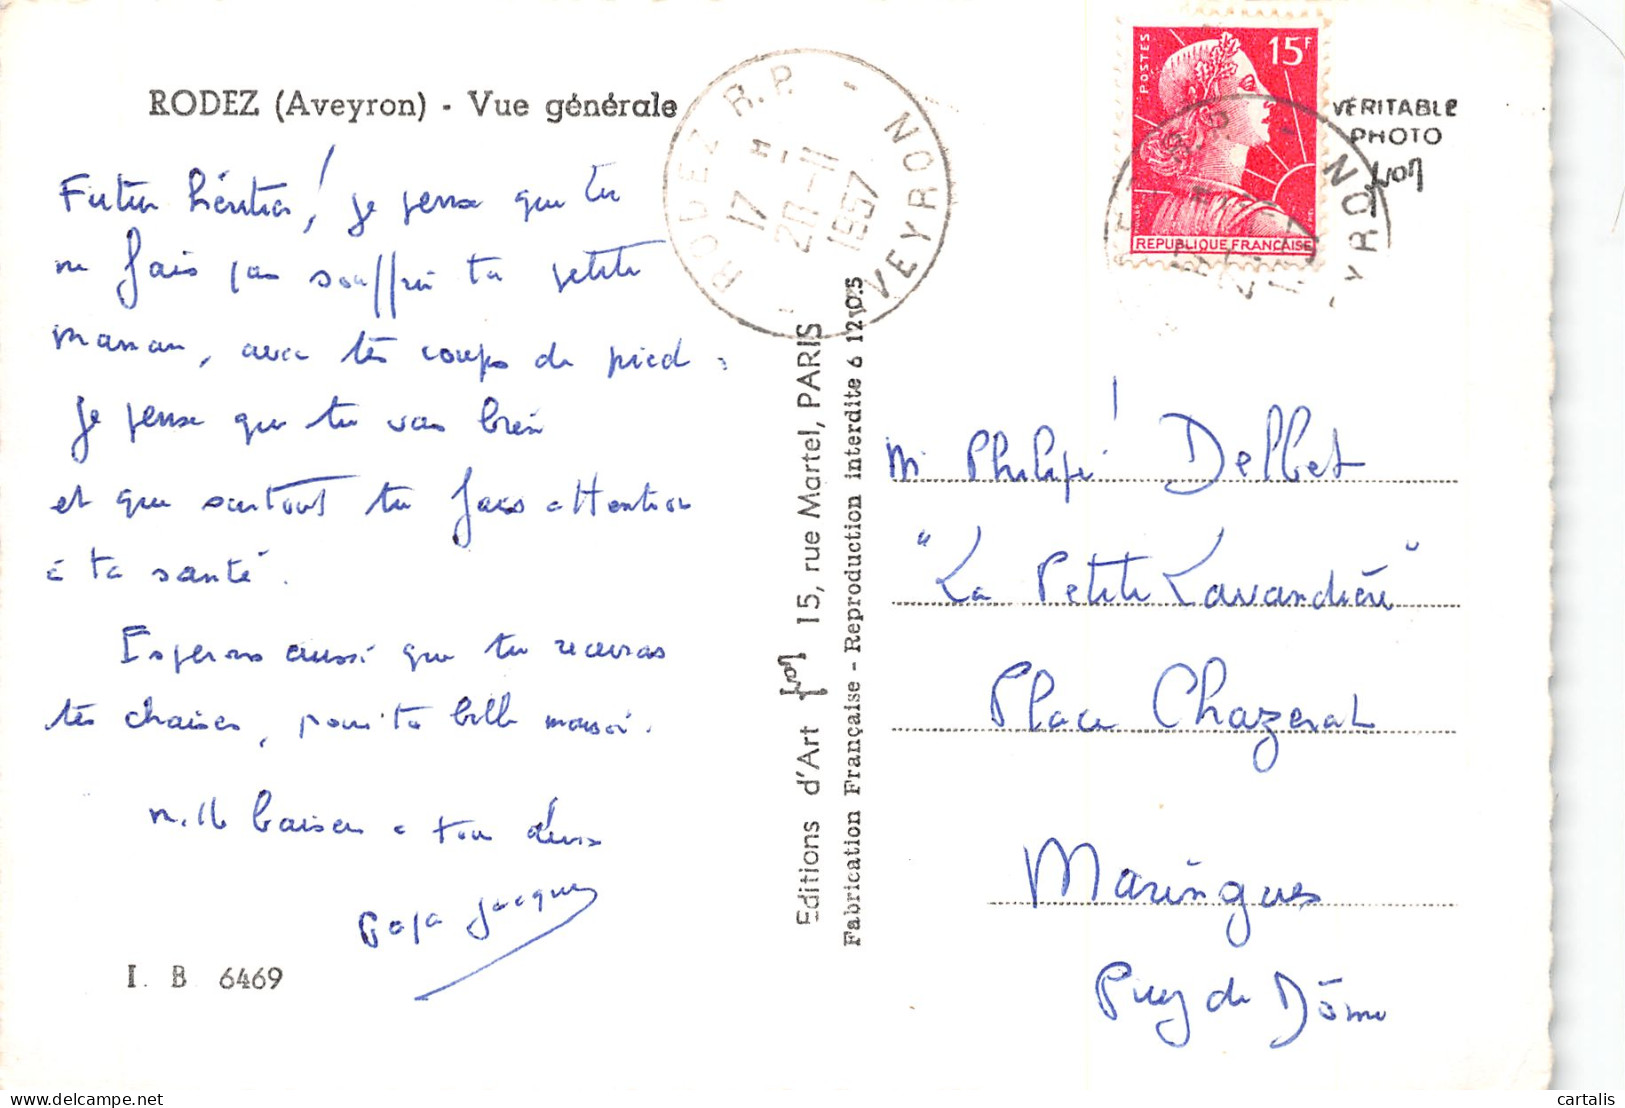 RODEZ (Aveyron) - Vue générale
Futur héritier ! je pense que tu
ne fais pas souffrir ta petite
maman, avec tes coups de pied :
je pense que tu vas bien
et que surtout tu fais attention
à ta santé.
Esperons aussi que tu recevras
tes chaises, pour ta belle maison.
mille baisers à tou deux
Papa Jacques
I. B. 6469
RODEZ R.P. - AVEYRON
17 H
20-11
1957
Editions d'Art Yvon 15, rue Martel, PARIS
Fabrication Française - Reproduction interdite 6 12 05
POSTES
15F
REPUBLIQUE FRANÇAISE
VÉRITABLE
PHOTO
Yvon
Mr Philippe Delbet
"La Petite Lavandière"
Place Chazerat
Maringues
Puy de Dôme
cartalis